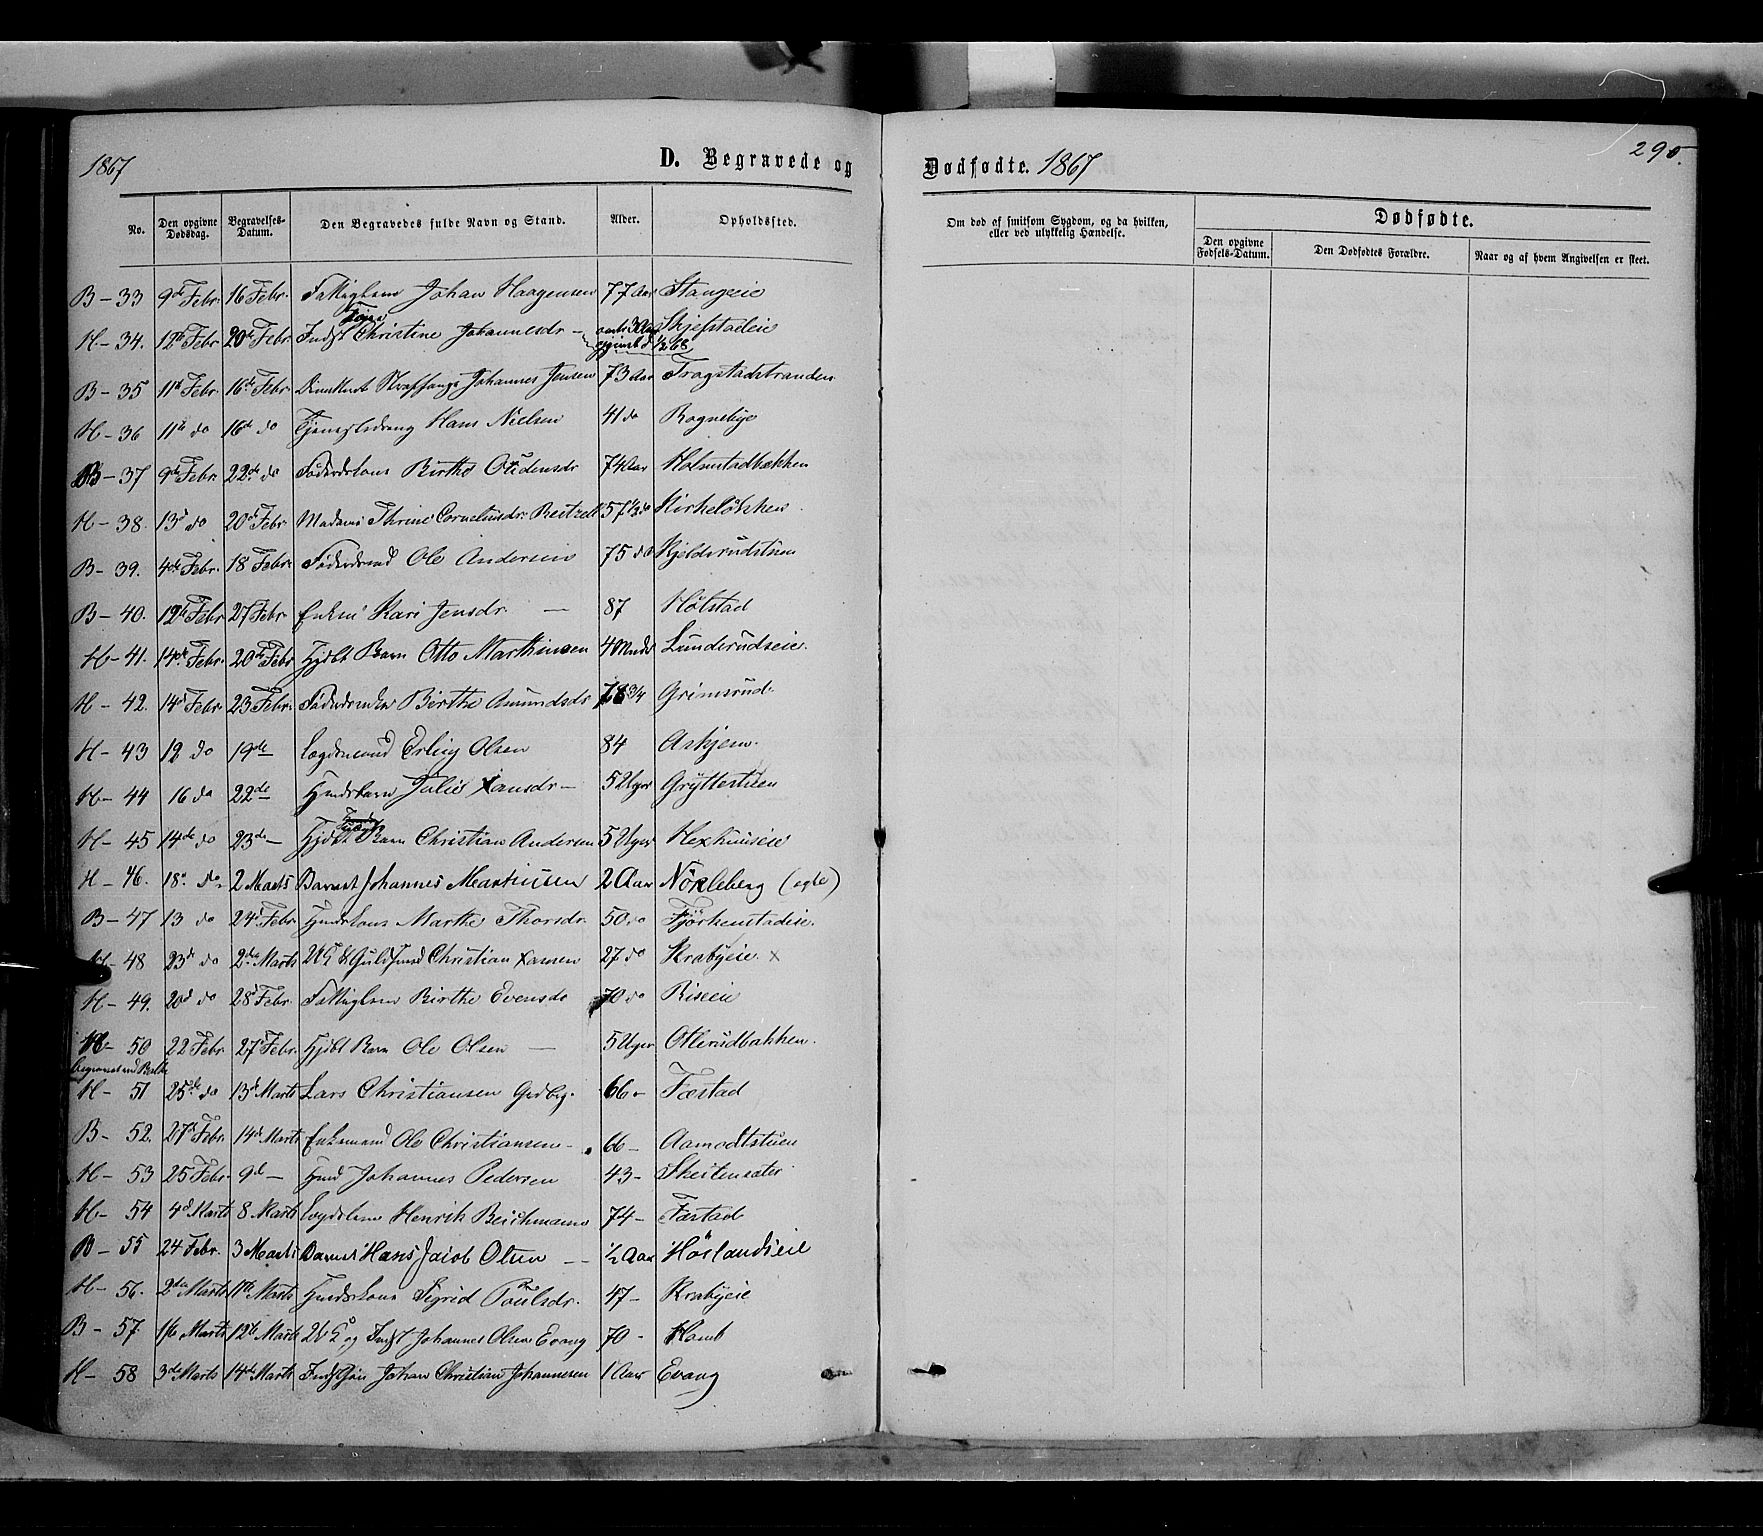 1867
D. Begravede og
Dødfødte. 1867
295.
No.
Den opgivne Dødsdag.
Begravelses-Datum.
Den Begravedes fulde Navn og Stand.
Alder.
Opholdssted.
Om død af smitsom Sygdom, og da hvilken, eller ved ulykkelig Hændelse.
Dødfødte.
Den opgivne Fødsels-Datum.
Den Dødfødtes Forældre.
Naar og af hvem Angivelsen er skeet.
B - 33 9de Febr. 16 Febr. Fattiglem Johan Haagensen 77 Aar Stangeie
H - 34. 12te Febr 20de Febr. Indst Christine Johannesdr - Skjefstadeie
B - 35 11te Febr. 16de Febr. Johannes Jensen 73 Aar Fragstadstranden
H - 36 11te do 16de do Hans Nielsen 41 do Rognebye
B - 37 9de Febr. 22de do Føderdskone Birthe Oudensdr 74 Aar Holmstadbækken
H - 38. 13d do 20de Febr Madame Thrine Corneliusdr 57½ do Kirkeløkken
B - 39. 4de Febr. 18 Febr. Føderdsmd Ole Andersen 75 do Kjeldsrudstuen
B - 40. 12te Febr 27 Febr Enken Kari Jensdr - 87 Hølstad
H - 41. 14de Febr. 20de Febr Hjdbt Barn Otto Marthinsen 4 Mndr Lunderudseie.
H - 42. 14d Febr. 23 Febr. Birthe Amundsdr 78 3/4 Grimsrud
H - 43 12 do 19de Lægdsmand Erling Olsen 84 Askjem.
H - 44 16 do 22de Husdsbarn Julie Hansdr - 5 Uger Gryttestuen
H - 45 14de do 23de - Hjdbt Barn Christian Andersen 5 Uger Hexhuuseie
H - 46. 18. do. 2 Marts Barnet Johannes Martinsen 2 Aar Nökleberg (egte)
B - 47 13 do 24d Febr Husdskone Marthe Thorsdr. 50 do Fjørkenstadeie.
H - 48 23d do 2de Marts Christian Hansen 27 do Krabyeie. x
H - 49. 20d do 28d Febr. Fattiglem Birthe Evensdr 70 do Riseeie
H - 50 22 Febr. 27d Febr. Hjdbt Barn Ole Olsen - 5 Uger Ottersudbakken.
H - 51 25de do 13d Marts Lars Christiansen Grdbg. 66 - Fæstad
B - 52. 27d Febr. 14d Marts Enkemand Ole Christiansen - 66 - Aamodtstuen
H - 53 25 Febr. 9d - Husd Johannes Pedersen 43 -
H - 54 4d Marts 8 Marts Lægdslem Henrik Beichmann 74 - Fæstad
B - 55 24 Febr. 3 Marts Barnet Hans Jacob Olsen - - ½ Aar Höslandseie
H - 56. 2den Marts 11te Marts Husdskone Sigrid Poulsdr. 47 - Krabyeie
B - 57. 1te Marts 12te Marts Johannes Olsen Evang 70 -
H - 58 3de Marts 14de Marts Johan Christian Johannesen 1 Aar Evang